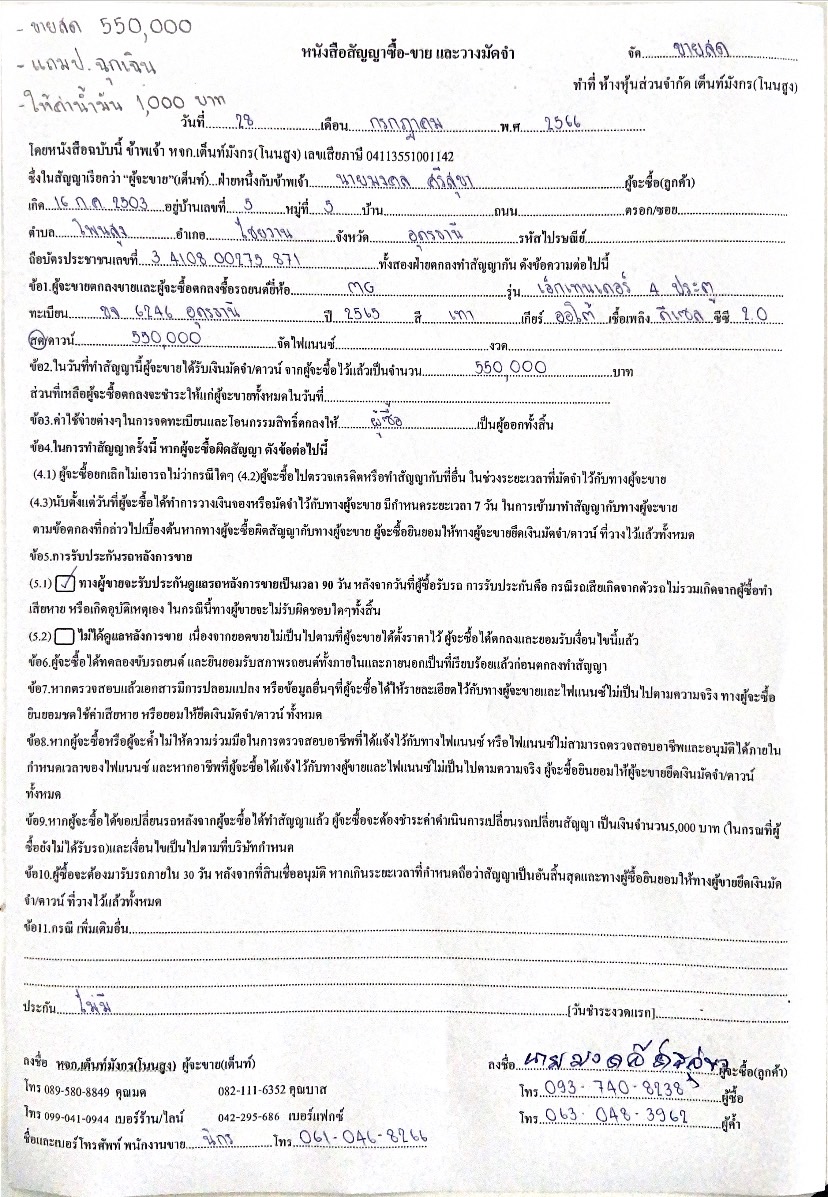 - ขายสด 550,000
- แถมป.ฉุกเฉิน
- ให้ค่าน้ำมัน 1,000 บาท
หนังสือสัญญาซื้อ-ขาย และวางมัดจำ
จัด ขายสด
ทำที่ ห้างหุ้นส่วนจำกัด เต็นท์มังกร(โนนสูง)
วันที่ 28 เดือน กรกฎาคม พ.ศ 2566
โดยหนังสือฉบับนี้ ข้าพเจ้า หจก.เต็นท์มังกร(โนนสูง) เลขเสียภาษี 04113551001142
ซึ่งในสัญญาเรียกว่า "ผู้จะขาย"(เต็นท์)...ฝ่ายหนึ่งกับข้าพเจ้า นายมงคล ศรีสุขา ผู้จะซื้อ(ลูกค้า)
เกิด 16 ก.ค. 2503 อยู่บ้านเลขที่ 5 หมู่ที่ 5 บ้าน ถนน ตรอก/ซอย
ตำบล โพนสูง อำเภอ ไชยวาน จังหวัด อุดรธานี รหัสไปรษณีย์
ถือบัตรประชาชนเลขที่ 3 4108 00275 871 ทั้งสองฝ่ายตกลงทำสัญญากัน ดังข้อความต่อไปนี้
ข้อ1.ผู้จะขายตกลงขายและผู้จะซื้อตกลงซื้อรถยนต์ยี่ห้อ MG รุ่น เอ็กเทนเดอร์ 4 ประตู
ทะเบียน 6246 อุดรธานี ปี 2565 สี เทา เกียร์ ออโต้ เชื้อเพลิง ดีเซล ซีซี 2.0
สด/ดาวน์ 550,000 จัดไฟแนนซ์ งวด
ข้อ2.ในวันที่ทำสัญญานี้ผู้จะขายได้รับเงินมัดจำ/ดาวน์ จากผู้จะซื้อไว้แล้วเป็นจำนวน 550,000 บาท
ส่วนที่เหลือผู้จะซื้อตกลงจะชำระให้แก่ผู้จะขายทั้งหมดในวันที่
ข้อ3.ค่าใช้จ่ายต่างๆในการจดทะเบียนและโอนกรรมสิทธิ์ตกลงให้ ผู้ซื้อ เป็นผู้ออกทั้งสิ้น
ข้อ4.ในการทำสัญญาครั้งนี้ หากผู้จะซื้อผิดสัญญา ดังข้อต่อไปนี้
(4.1) ผู้จะซื้อยกเลิกไม่เอารถไม่ว่ากรณีใดๆ (4.2)ผู้จะซื้อไปตรวจเครดิตหรือทำสัญญากับที่อื่น ในช่วงระยะเวลาที่มัดจำไว้กับทางผู้จะขาย
(4.3)นับตั้งแต่วันที่ผู้จะซื้อได้ทำการวางเงินจองหรือมัดจำไว้กับทางผู้จะขาย มีกำหนดระยะเวลา 7 วัน ในการเข้ามาทำสัญญากับทางผู้จะขาย
ตามข้อตกลงที่กล่าวไปเบื้องต้นหากทางผู้จะซื้อผิดสัญญากับทางผู้จะขาย ผู้จะซื้อยินยอมให้ทางผู้จะขายยึดเงินมัดจำ/ดาวน์ ที่วางไว้แล้วทั้งหมด
ข้อ5.การรับประกันรถหลังการขาย
(5.1) ทางผู้ขายจะรับประกันดูแลรถหลังการขายเป็นเวลา 90 วัน หลังจากวันที่ผู้ซื้อรับรถ การรับประกันคือ กรณีรถเสียเกิดจากตัวรถไม่รวมเกิดจากผู้ซื้อทำ
เสียหาย หรือเกิดอุบัติเหตุเอง ในกรณีนี้ทางผู้ขายจะไม่รับผิดชอบใดๆทั้งสิ้น
(5.2) ไม่ได้ดูแลหลังการขาย เนื่องจากยอดขายไม่เป็นไปตามที่ผู้จะขายได้ตั้งราคาไว้ ผู้จะซื้อได้ตกลงและยอมรับเงื่อนไขนี้แล้ว
ข้อ6.ผู้จะซื้อได้ทดลองขับรถยนต์ และยินยอมรับสภาพรถยนต์ทั้งภายในและภายนอกเป็นที่เรียบร้อยแล้วก่อนตกลงทำสัญญา
ข้อ7.หากตรวจสอบแล้วเอกสารมีการปลอมแปลง หรือข้อมูลอื่นๆที่ผู้จะซื้อได้ให้รายละเอียดไว้กับทางผู้จะขายและไฟแนนซ์ไม่เป็นไปตามความจริง ทางผู้จะซื้อ
ยินยอมชดใช้ค่าเสียหาย หรือยอมให้ยึดเงินมัดจำ/ดาวน์ ทั้งหมด
ข้อ8.หากผู้จะซื้อหรือผู้จะค้ำไม่ให้ความร่วมมือในการตรวจสอบอาชีพที่ได้แจ้งไว้กับทางไฟแนนซ์ หรือไฟแนนซ์ไม่สามารถตรวจสอบอาชีพและอนุมัติได้ภายใน
กำหนดเวลาของไฟแนนซ์ และหากอาชีพที่ผู้จะซื้อได้แจ้งไว้กับทางผู้ขายและไฟแนนซ์ไม่เป็นไปตามความจริง ผู้จะซื้อยินยอมให้ผู้จะขายยึดเงินมัดจำ/ดาวน์
ทั้งหมด
ข้อ9.หากผู้จะซื้อได้ขอเปลี่ยนรถหลังจากผู้จะซื้อได้ทำสัญญาแล้ว ผู้จะซื้อจะต้องชำระค่าดำเนินการเปลี่ยนรถเปลี่ยนสัญญา เป็นเงินจำนวน5,000 บาท (ในกรณที่ผู้
ซื้อยังไม่ได้รับรถ)และเงื่อนไขเป็นไปตามที่บริษัทกำหนด
ข้อ10.ผู้ซื้อจะต้องมารับรถภายใน 30 วัน หลังจากที่สินเชื่ออนุมัติ หากเกินระยะเวลาที่กำหนดถือว่าสัญญาเป็นอันสิ้นสุดและทางผู้ซื้อยินยอมให้ทางผู้ขายยึดเงินมัด
จำ/ดาวน์ ที่วางไว้แล้วทั้งหมด
ข้อ11.กรณี เพิ่มเติมอื่น
ประกัน ไม่มี [วันชำระงวดแรก] -
ลงชื่อ หจก.เต็นท์มังกร(โนนสูง) ผู้จะขาย(เต็นท์) ลงชื่อ นายมงคล ศรีสุขา ผู้จะซื้อ(ลูกค้า)
โทร 089-580-8849 คุณมด 082-111-6352 คุณบาส โทร 093-740-8238 ผู้ซื้อ
โทร 099-041-0944 เบอร์ร้าน/ไลน์ 042-295-686 เบอร์แฟกซ์ โทร 063-048-3962 ผู้ค้ำ
ชื่อและเบอร์โทรศัพท์ พนักงานขาย นิกร โทร 061-046-8266